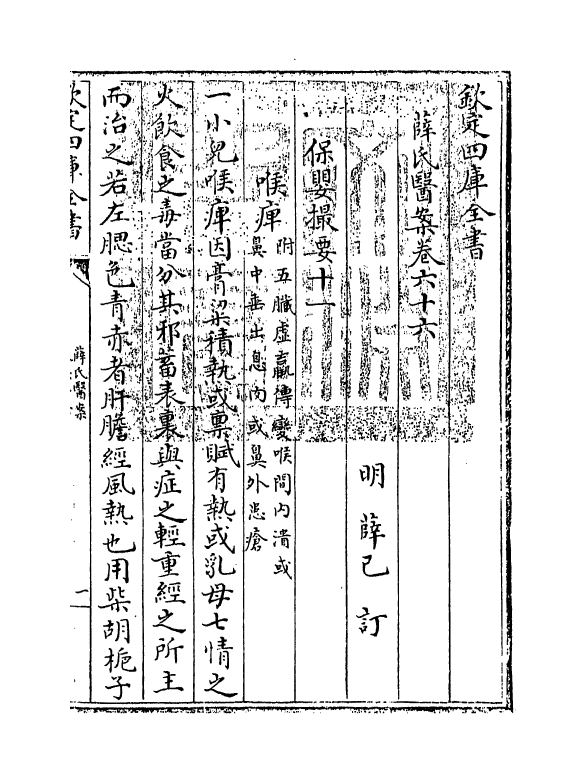 欽定四庫全書
薛氏醫案卷六十六
明 薛己 訂
保嬰撮要十一
喉痺附五臟虛羸傳變喉間内潰或
鼻中垂出息肉或鼻外患瘡
一小兒喉痺因膏粱積熱或禀賦有熱或乳母七情之
火飲食之毒當分其邪蓄表裏與症之輕重經之所主
而治之若左腮色青赤者肝膽經風熱也用柴胡梔子
欽定四庫全書
薛氏醫案
一